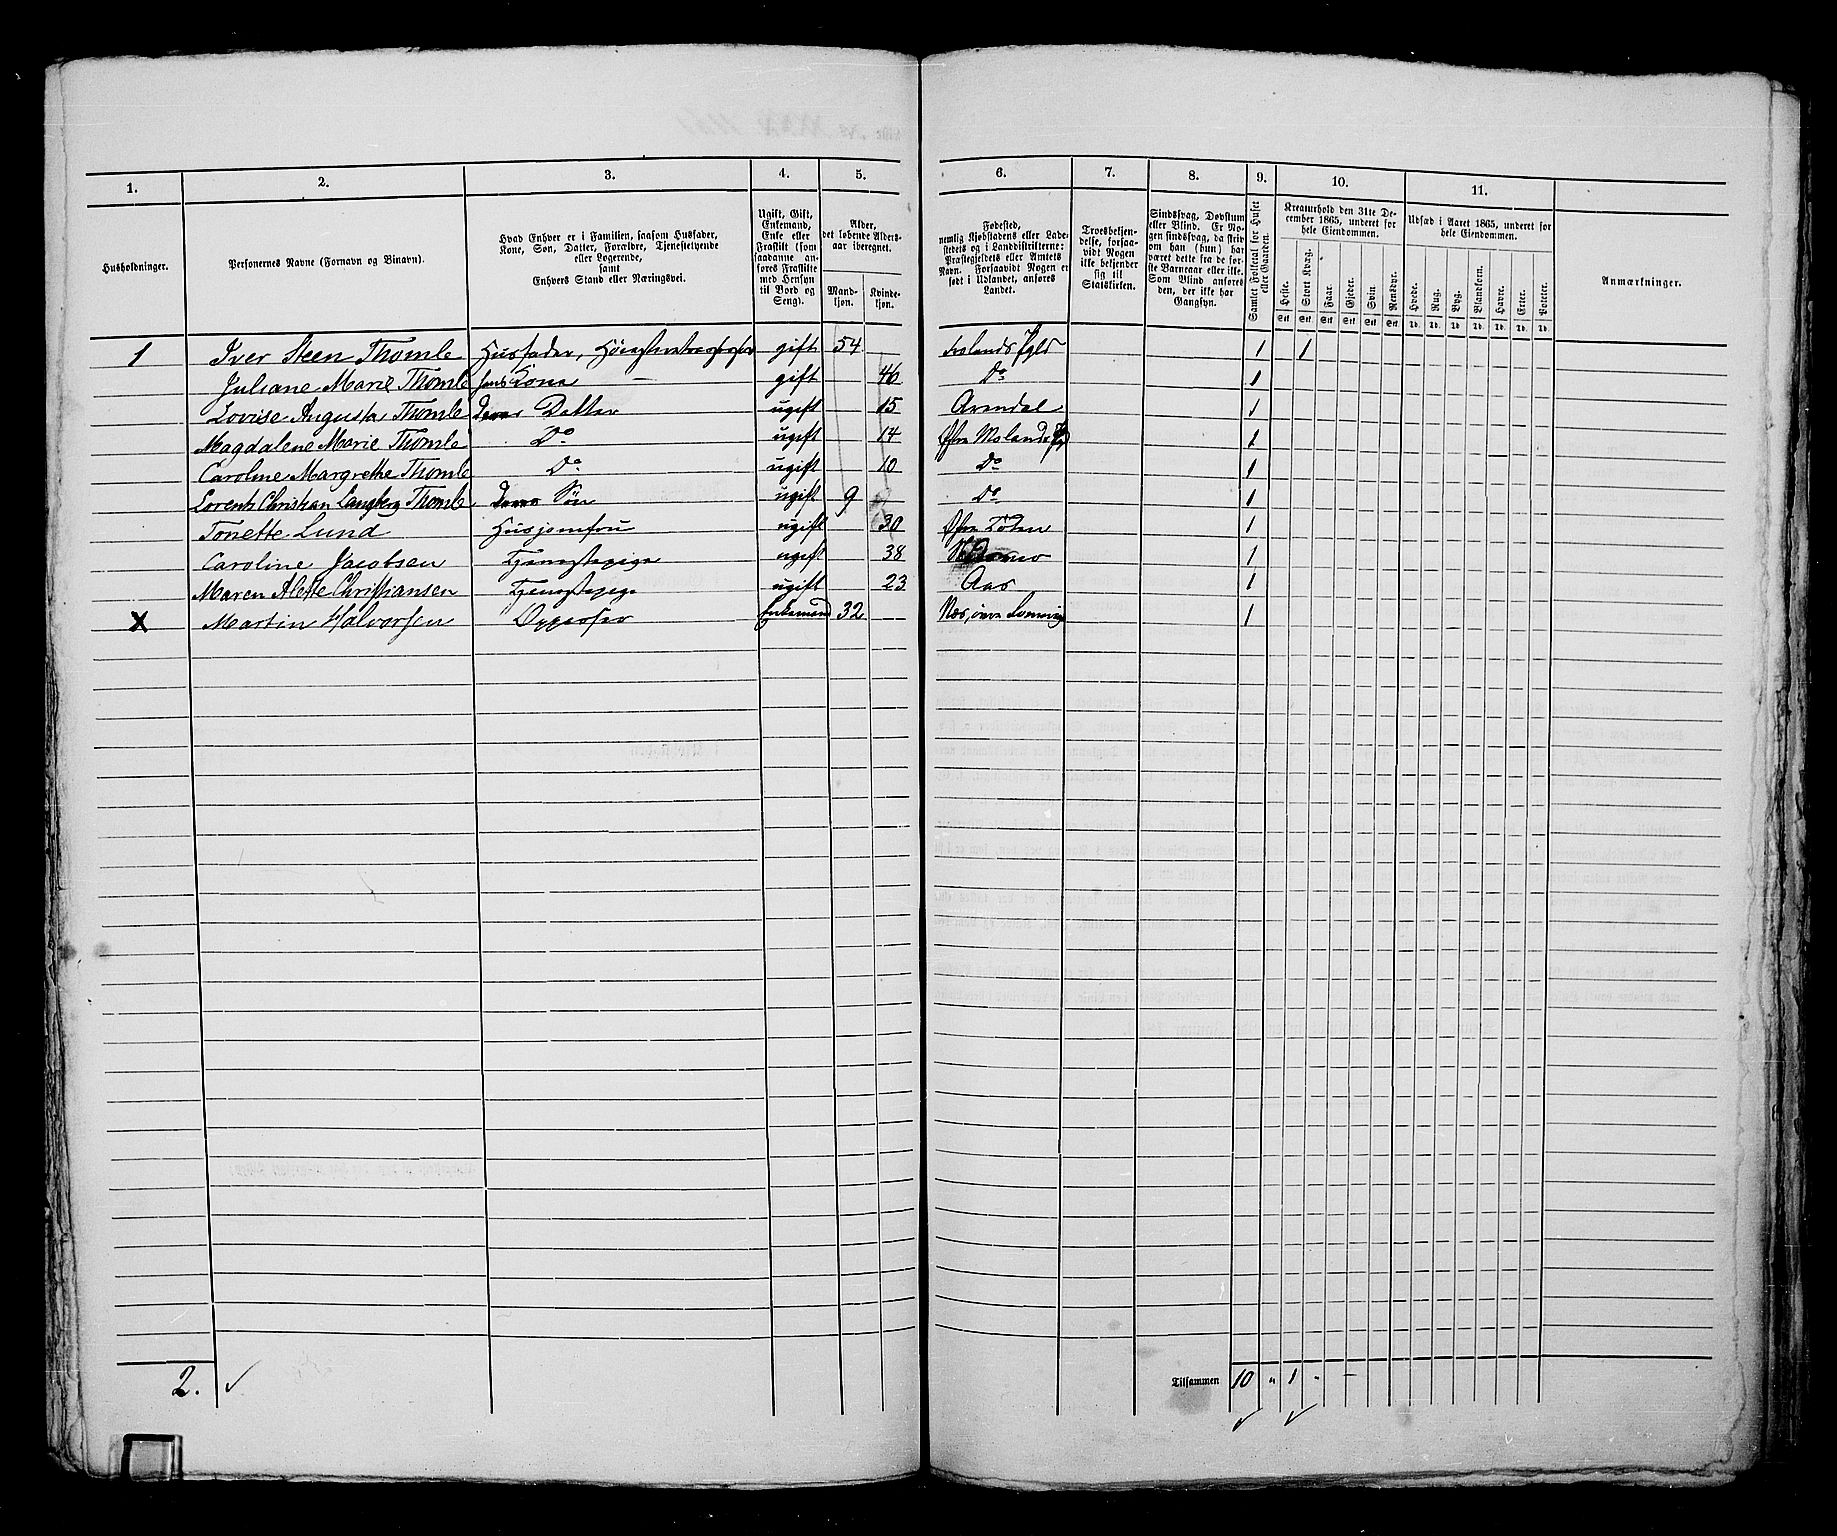 1. 2. 3. 4. 5. 6. 7. 8. 9. 10. 11.
Husholdninger.
Personernes Navne (Fornavn og Binavn).
Hvad Enhver er i Familien, saasom Husfader,
Kone, Søn, Datter, Forældre, Tjenestetyende
eller Logerende,
samt
Enhvers Stand eller Næringsvei.
Ugift, Gift,
Enkemand,
Enke eller
Fraskilt (som
saadanne an-
føres Fraskilte
med Hensyn
til Bord og
Seng).
Alder,
det løbende Alders-
aar iberegnet.
Mand-
kjøn.
Kvinde-
kjøn.
Fødested,
nemlig Kjøbstadens eller Lade-
stedets og i Landdistrikterne:
Præstegjeldets eller Amtets
Navn. Forsaavidt Nogen er
født i Udlandet, anføres
Landet.
Troesbekjen-
delse, forsaa-
vidt Nogen
ikke bekjender
sig til
Statskirken.
Sindssvag, Døvstum
eller Blind. Er No-
gen sindssvag, da skriv
om han (hun) har
været dette fra de før-
ste Barneaar eller ikke.
Som Blind anføres
den, der ikke har
Gangsyn.
Samlet Folketal for Huset
eller Gaarden.
Kreaturhold den 31te De-
cember 1865, underet for
hele Eiendommen.
Heste. Stort Kvæg. Faar. Gjeder. Sviin Rensdyr.
Stk. Stk. Stk. Stk. Stk. Stk.
Udsæd i Aaret 1865, underet for
hele Eiendommen.
Hvede. Rug. Byg. Blandkorn. Havre. Erter. Poteter.
Td. Td. Td. Td. Td. Td. Td.
Anmærkninger.
1 Iver Steen Thomle Husfader, gift 54 1 1
Juliane Marie Thomle hans Kone gift 46 Do 1
Lovise Augusta Thomle Deres Datter ugift 15 Arendal 1
Magdalene Marie Thomle Do ugift 14 Østre Molands 1
Caroline Margrethe Thomle Do ugift 10 Do 1
Lorents Christian Thomle Deres Søn ugift 9 Do 1
Tonette Lund Husjomfru ugift 30 Østre Toten 1
Caroline Jacobsen Tjenestepige ugift 38 1
Maren Alette Christiansen Tjenestepige ugift 23 Aas 1
X Martin Halvorsen Oppasser Enkemand 32 Næs, 1
2. Tilsammen 10 " 1 " –